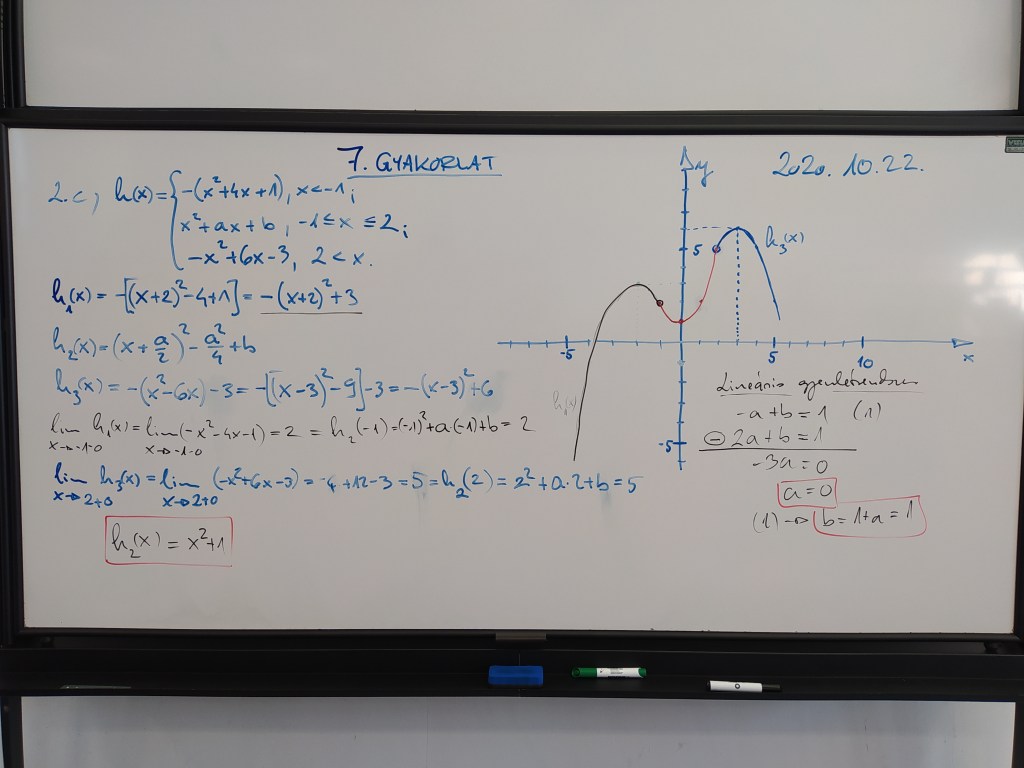 7. GYAKORLAT
2020. 10. 22.
2.c, h(x)= { -(x²+4x+1), x<-1;
x²+ax+b, -1≤x≤2;
-x²+6x-3, 2<x.
h₁(x) = -[(x+2)²-4+1] = -(x+2)²+3
h₂(x)=(x+a/2)²-a²/4+b
h₃(x) = -(x²-6x)-3 = -[(x-3)²-9]-3 = -(x-3)²+6
lim h₁(x) = lim (-x²-4x-1) = 2 = h₂(-1)=(-1)²+a·(-1)+b = 2
x→-1-0 x→-1-0
lim h₃(x) = lim (-x²+6x-3) = -4+12-3 = 5 = h₂(2) = 2²+a·2+b = 5
x→2+0 x→2+0
h₂(x) = x²+1
y
h₃(x)
5
-5 5 10
x
h₁(x)
-5
Lineáris egyenletrendszer
-a+b=1 (1)
⊖ 2a+b=1
-3a=0
a=0
(1) → b=1+a=1